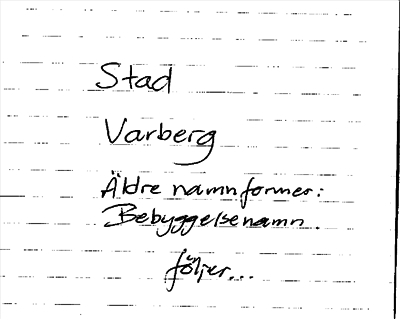 Stad
Varberg
Äldre namnformer:
Bebyggelsenamn.
följer...